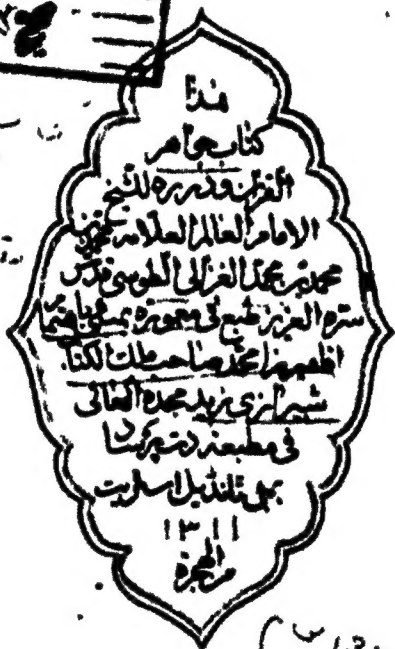 هذا
كتاب جواهر
القران ودرره للشيخ
الامام العالم العلامه محمد بن
محمد بن محمد الغزالى الطوسى قدس
سره العزيز طبع فى معموره بمبئى
محمد صاحب ملك الكتاب
شيرازى زيد مجده العالى
فى مطبعة دت پرساد
بمبئى اسطريت
١٣١١
من الهجرة